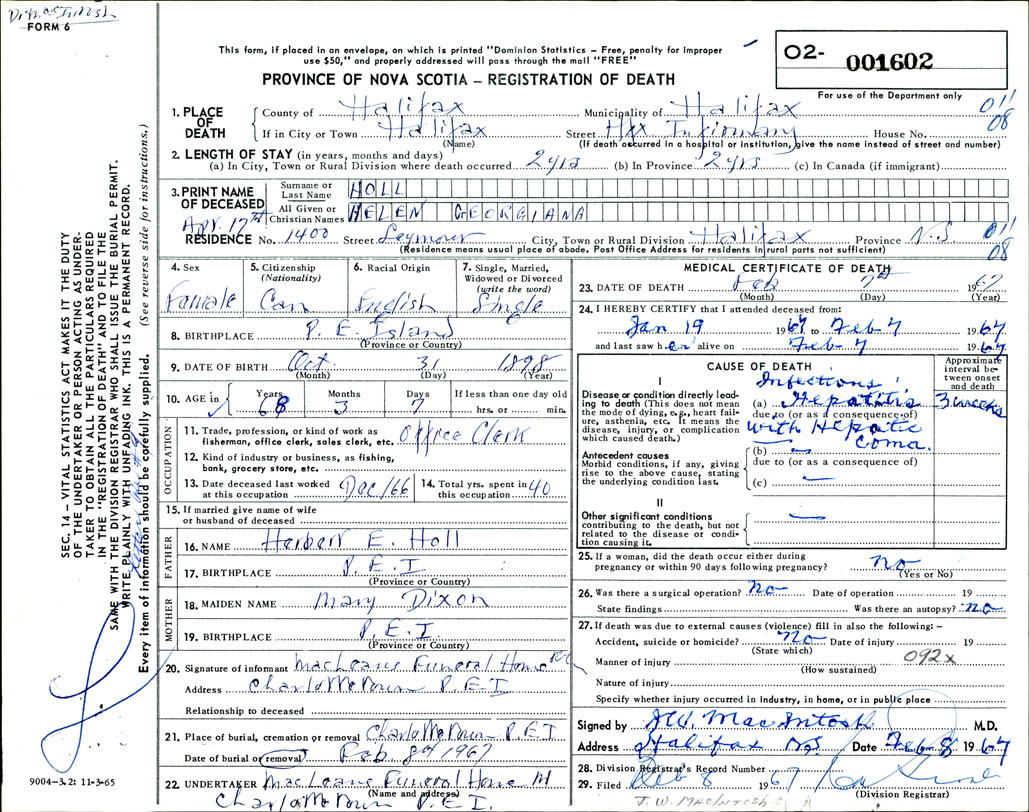 Dr. MacIntosh
FORM 6
This form, if placed in an envelope, on which is printed "Dominion Statistics – Free, penalty for improper
use $50," and properly addressed will pass through the mail "FREE"
PROVINCE OF NOVA SCOTIA – REGISTRATION OF DEATH
O2- 001602
For use of the Department only
011
08
1. PLACE OF DEATH
County of Halifax Municipality of Halifax
If in City or Town Halifax Street Hfx Infirmary House No.
(Name) (If death occurred in a hospital or institution, give the name instead of street and number)
2. LENGTH OF STAY (in years, months and days)
(a) In City, Town or Rural Division where death occurred 2 yrs (b) In Province 2 yrs (c) In Canada (if immigrant)
3. PRINT NAME OF DECEASED
Surname or Last Name HOLL
All Given or Christian Names HELEN GEORGIANA
Apr. 17th
RESIDENCE No. 1400 Street Seymour City, Town or Rural Division Halifax Province N.S.
011
08
(Residence means usual place of abode. Post Office Address for residents in rural parts not sufficient)
4. Sex
Female
5. Citizenship (Nationality)
Can
6. Racial Origin
English
7. Single, Married, Widowed or Divorced (write the word)
Single
8. BIRTHPLACE P. E. Island
(Province or Country)
9. DATE OF BIRTH Oct 31 1898
(Month) (Day) (Year)
10. AGE in Years Months Days If less than one day old
68 3 7 hrs. or min.
OCCUPATION
11. Trade, profession, or kind of work as fisherman, office clerk, sales clerk, etc. Office Clerk
12. Kind of industry or business, as fishing, bank, grocery store, etc.
13. Date deceased last worked at this occupation Dec/66
14. Total yrs. spent in this occupation 40
15. If married give name of wife or husband of deceased
FATHER
16. NAME Herbert E. Holl
17. BIRTHPLACE P.E.I
(Province or Country)
MOTHER
18. MAIDEN NAME Mary Dixon
19. BIRTHPLACE P.E.I
(Province or Country)
20. Signature of informant MacLeans Funeral Home
Address Charlottetown P.E.I
Relationship to deceased
21. Place of burial, cremation or removal Charlottetown P.E.I
Date of burial or removal Feb. 8th 1967
22. UNDERTAKER MacLeans Funeral Home
(Name and address)
Charlottetown P.E.I.
MEDICAL CERTIFICATE OF DEATH
23. DATE OF DEATH Feb 7th 1967
(Month) (Day) (Year)
24. I HEREBY CERTIFY that I attended deceased from:
Jan 19 1967 to Feb 7 1967
and last saw her alive on Feb 7 1967
CAUSE OF DEATH
Approximate interval between onset and death
I
Disease or condition directly leading to death (This does not mean the mode of dying, e.g., heart failure, asthenia, etc. It means the disease, injury, or complication which caused death.)
Infectious
(a) Hepatitis 3 weeks
due to (or as a consequence of)
with Hepatic
Coma.
Antecedent causes
Morbid conditions, if any, giving rise to the above cause, stating the underlying condition last.
(b)
due to (or as a consequence of)
(c)
II
Other significant conditions
contributing to the death, but not related to the disease or condition causing it.
25. If a woman, did the death occur either during pregnancy or within 90 days following pregnancy? no
(Yes or No)
26. Was there a surgical operation? No Date of operation 19
State findings Was there an autopsy? no
27. If death was due to external causes (violence) fill in also the following: –
Accident, suicide or homicide? no Date of injury 19
(State which)
Manner of injury 092x
(How sustained)
Nature of injury
Specify whether injury occurred in Industry, in home, or in public place
Signed by J.W. MacIntosh M.D.
Address Halifax N.S. Date Feb 8 1967
28. Division Registrar's Record Number
29. Filed Feb 8 1967
(Division Registrar)
J. W. MACINTOSH
SEC. 14 – VITAL STATISTICS ACT MAKES IT THE DUTY
OF THE UNDERTAKER OR PERSON ACTING AS UNDER-
TAKER TO OBTAIN ALL THE PARTICULARS REQUIRED
IN THE "REGISTRATION OF DEATH" AND TO FILE THE
SAME WITH THE DIVISION REGISTRAR WHO SHALL ISSUE THE BURIAL PERMIT.
WRITE PLAINLY WITH UNFADING INK. THIS IS A PERMANENT RECORD.
Every item of information should be carefully supplied. (See reverse side for instructions.)
9004-3.2: 11-3-65